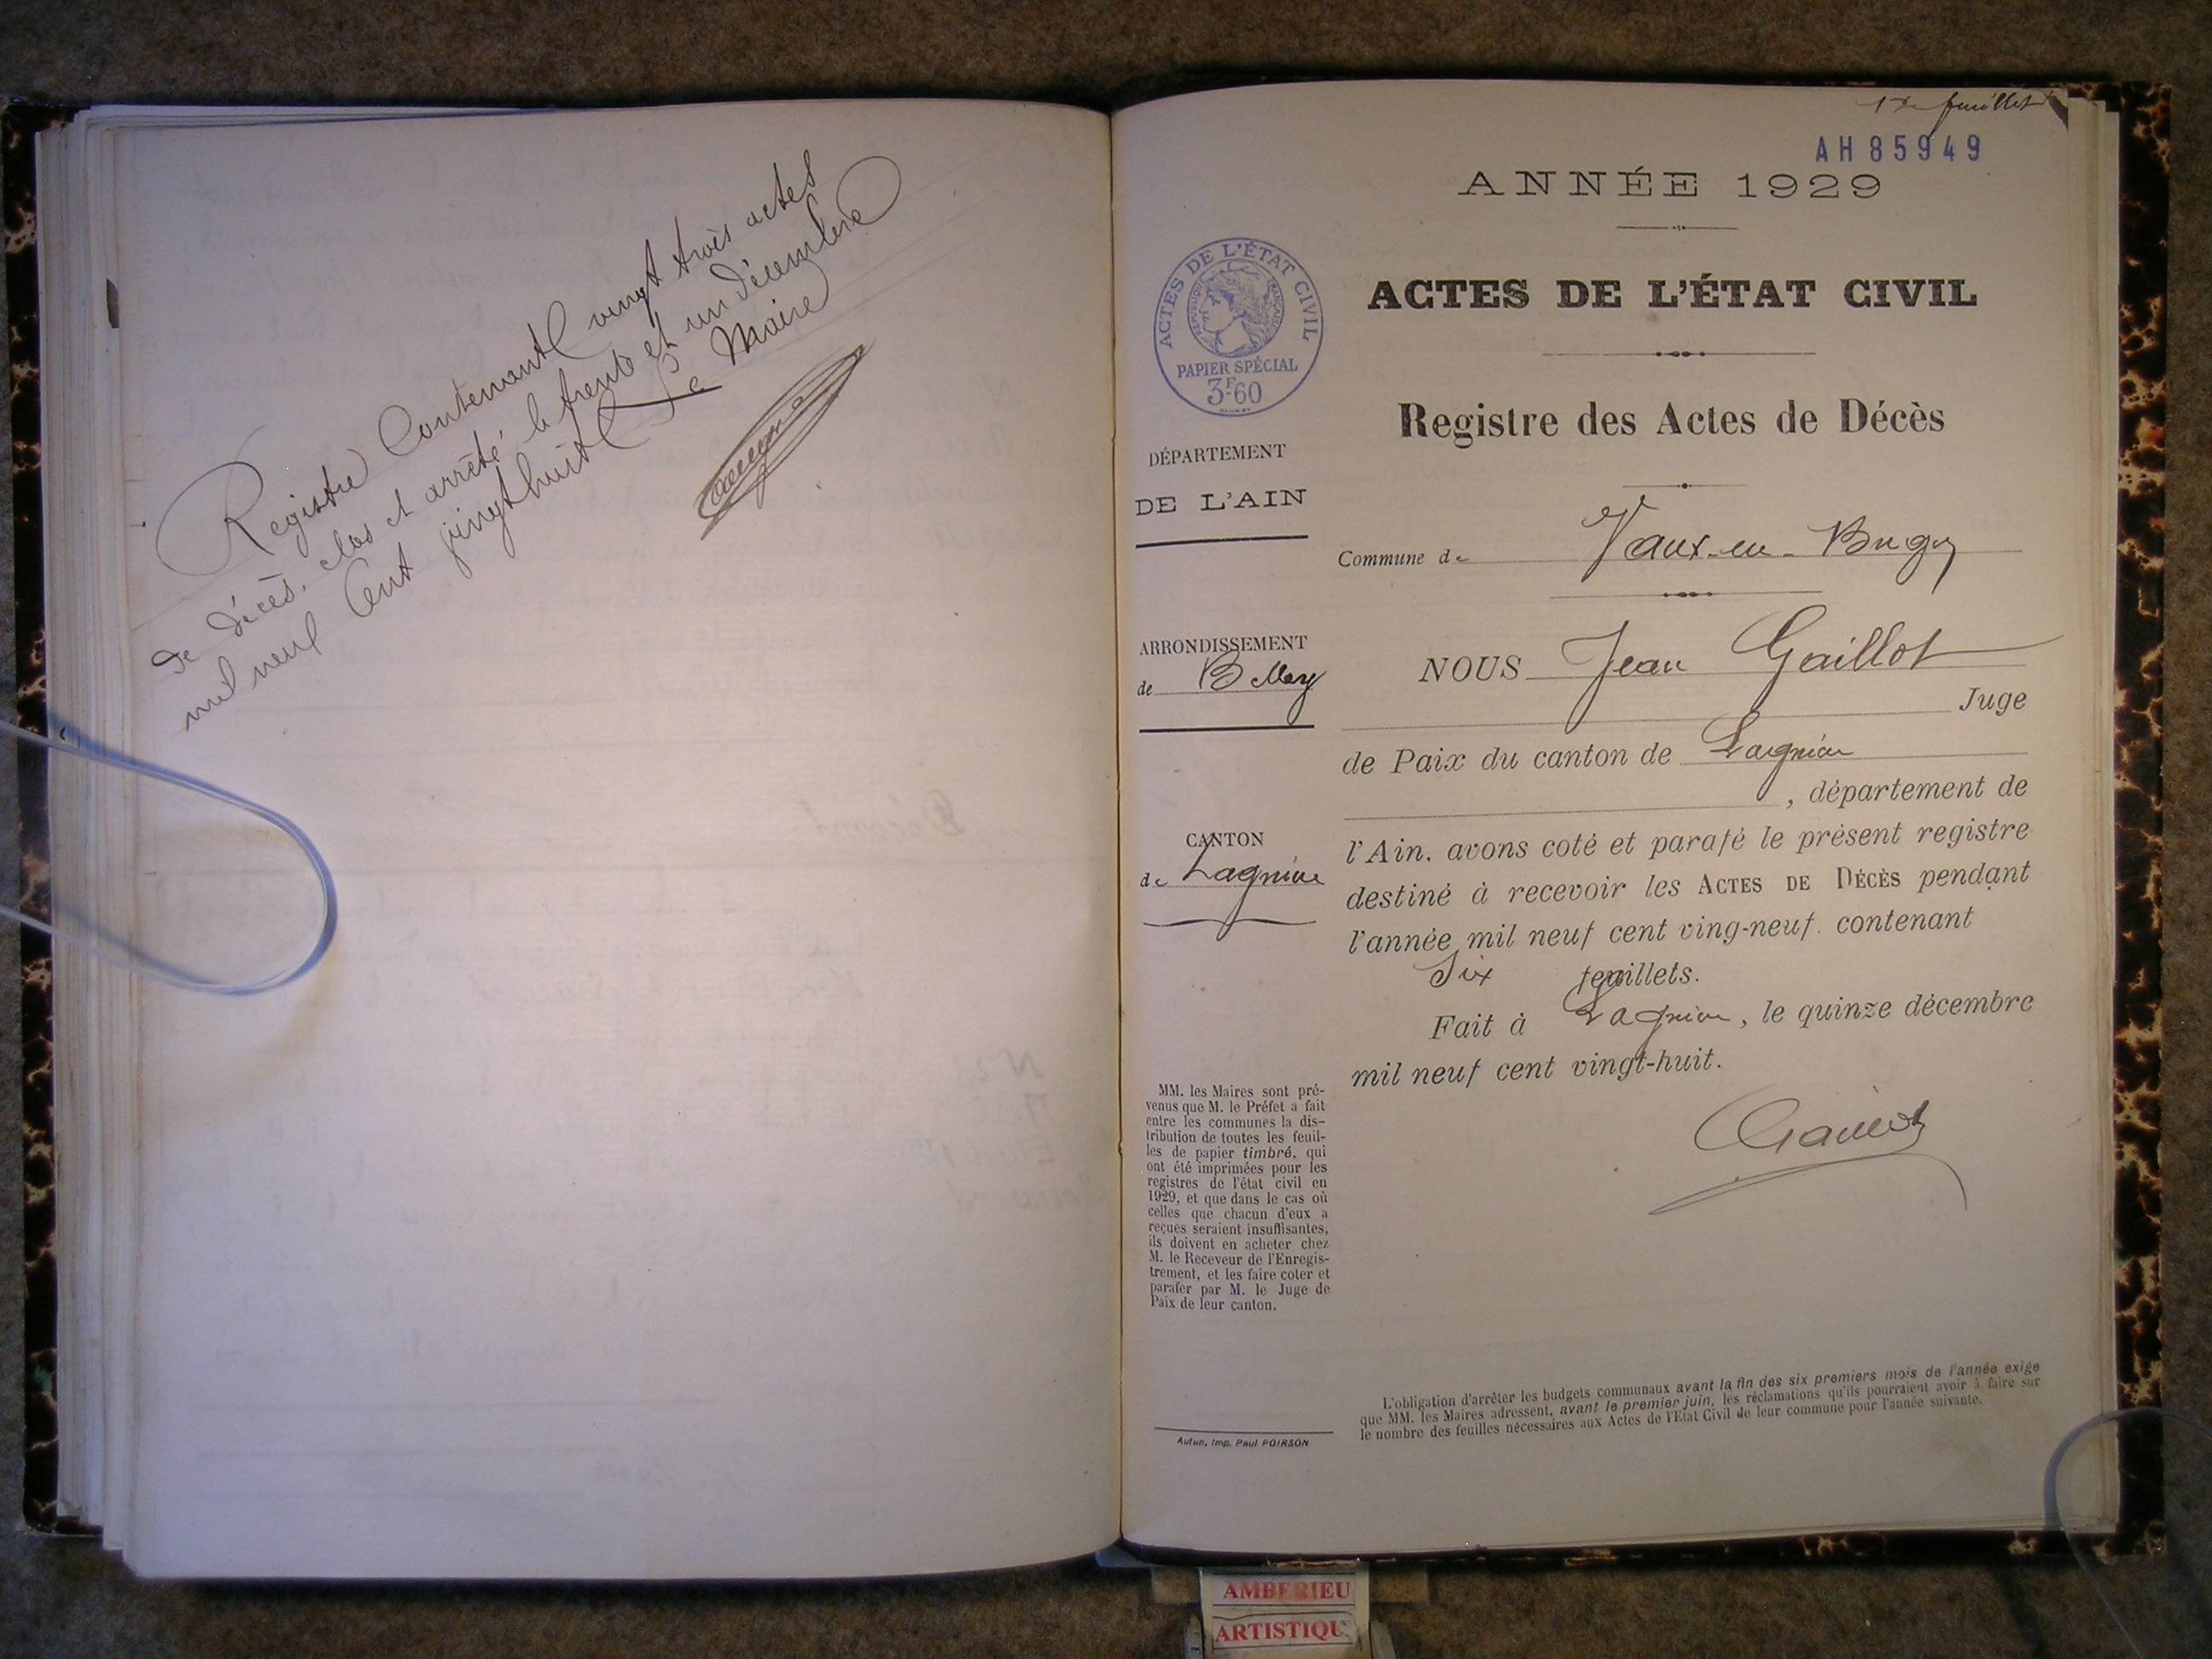 Registre Contenant vingt trois actes
de décès, clos et arrêté le trente et un décembre
mil neuf Cent vingt huit Le Maire
1er feuillet
AH 85949
ANNÉE 1929
ACTES DE L'ÉTAT CIVIL
RÉPUBLIQUE FRANÇAISE
PAPIER SPÉCIAL
3F60
ACTES DE L'ÉTAT CIVIL
Registre des Actes de Décès
DÉPARTEMENT
DE L'AIN
Commune de Vaux-en-Bugey
ARRONDISSEMENT
de Belley
CANTON
de Lagnieu
NOUS Jean Gaillot
Juge
de Paix du canton de Lagnieu
, département de
l'Ain, avons coté et parafé le présent registre
destiné à recevoir les ACTES DE DÉCÈS pendant
l'année mil neuf cent ving-neuf. contenant
Six feuillets.
Fait à Lagnieu, le quinze décembre
mil neuf cent vingt-huit.
MM. les Maires sont pré-
venus que M. le Préfet a fait
entre les communes la dis-
tribution de toutes les feuil-
les de papier timbré, qui
ont été imprimées pour les
registres de l'état civil en
1929, et que dans le cas où
celles que chacun d'eux a
reçues seraient insuffisantes,
ils doivent en acheter chez
M. le Receveur de l'Enregis-
trement, et les faire coter et
parafer par M. le Juge de
Paix de leur canton.
L'obligation d'arrêter les budgets communaux avant la fin des six premiers mois de l'année exige
que MM. les Maires adressent, avant le premier juin, les réclamations qu'ils pourraient avoir à faire sur
le nombre des feuilles nécessaires aux Actes de l'Etat Civil de leur commune pour l'année suivante.
Autun, Imp. Paul POIRSON
AMBERIEU
ARTISTIQU